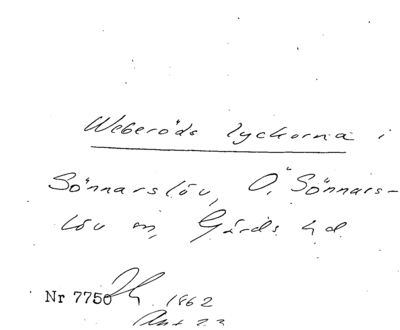 Weberöds lyckorna i
Sönnarslöv, Ö. Sönnars-
löv sn, Gärds hd.
Nr 7750 1962